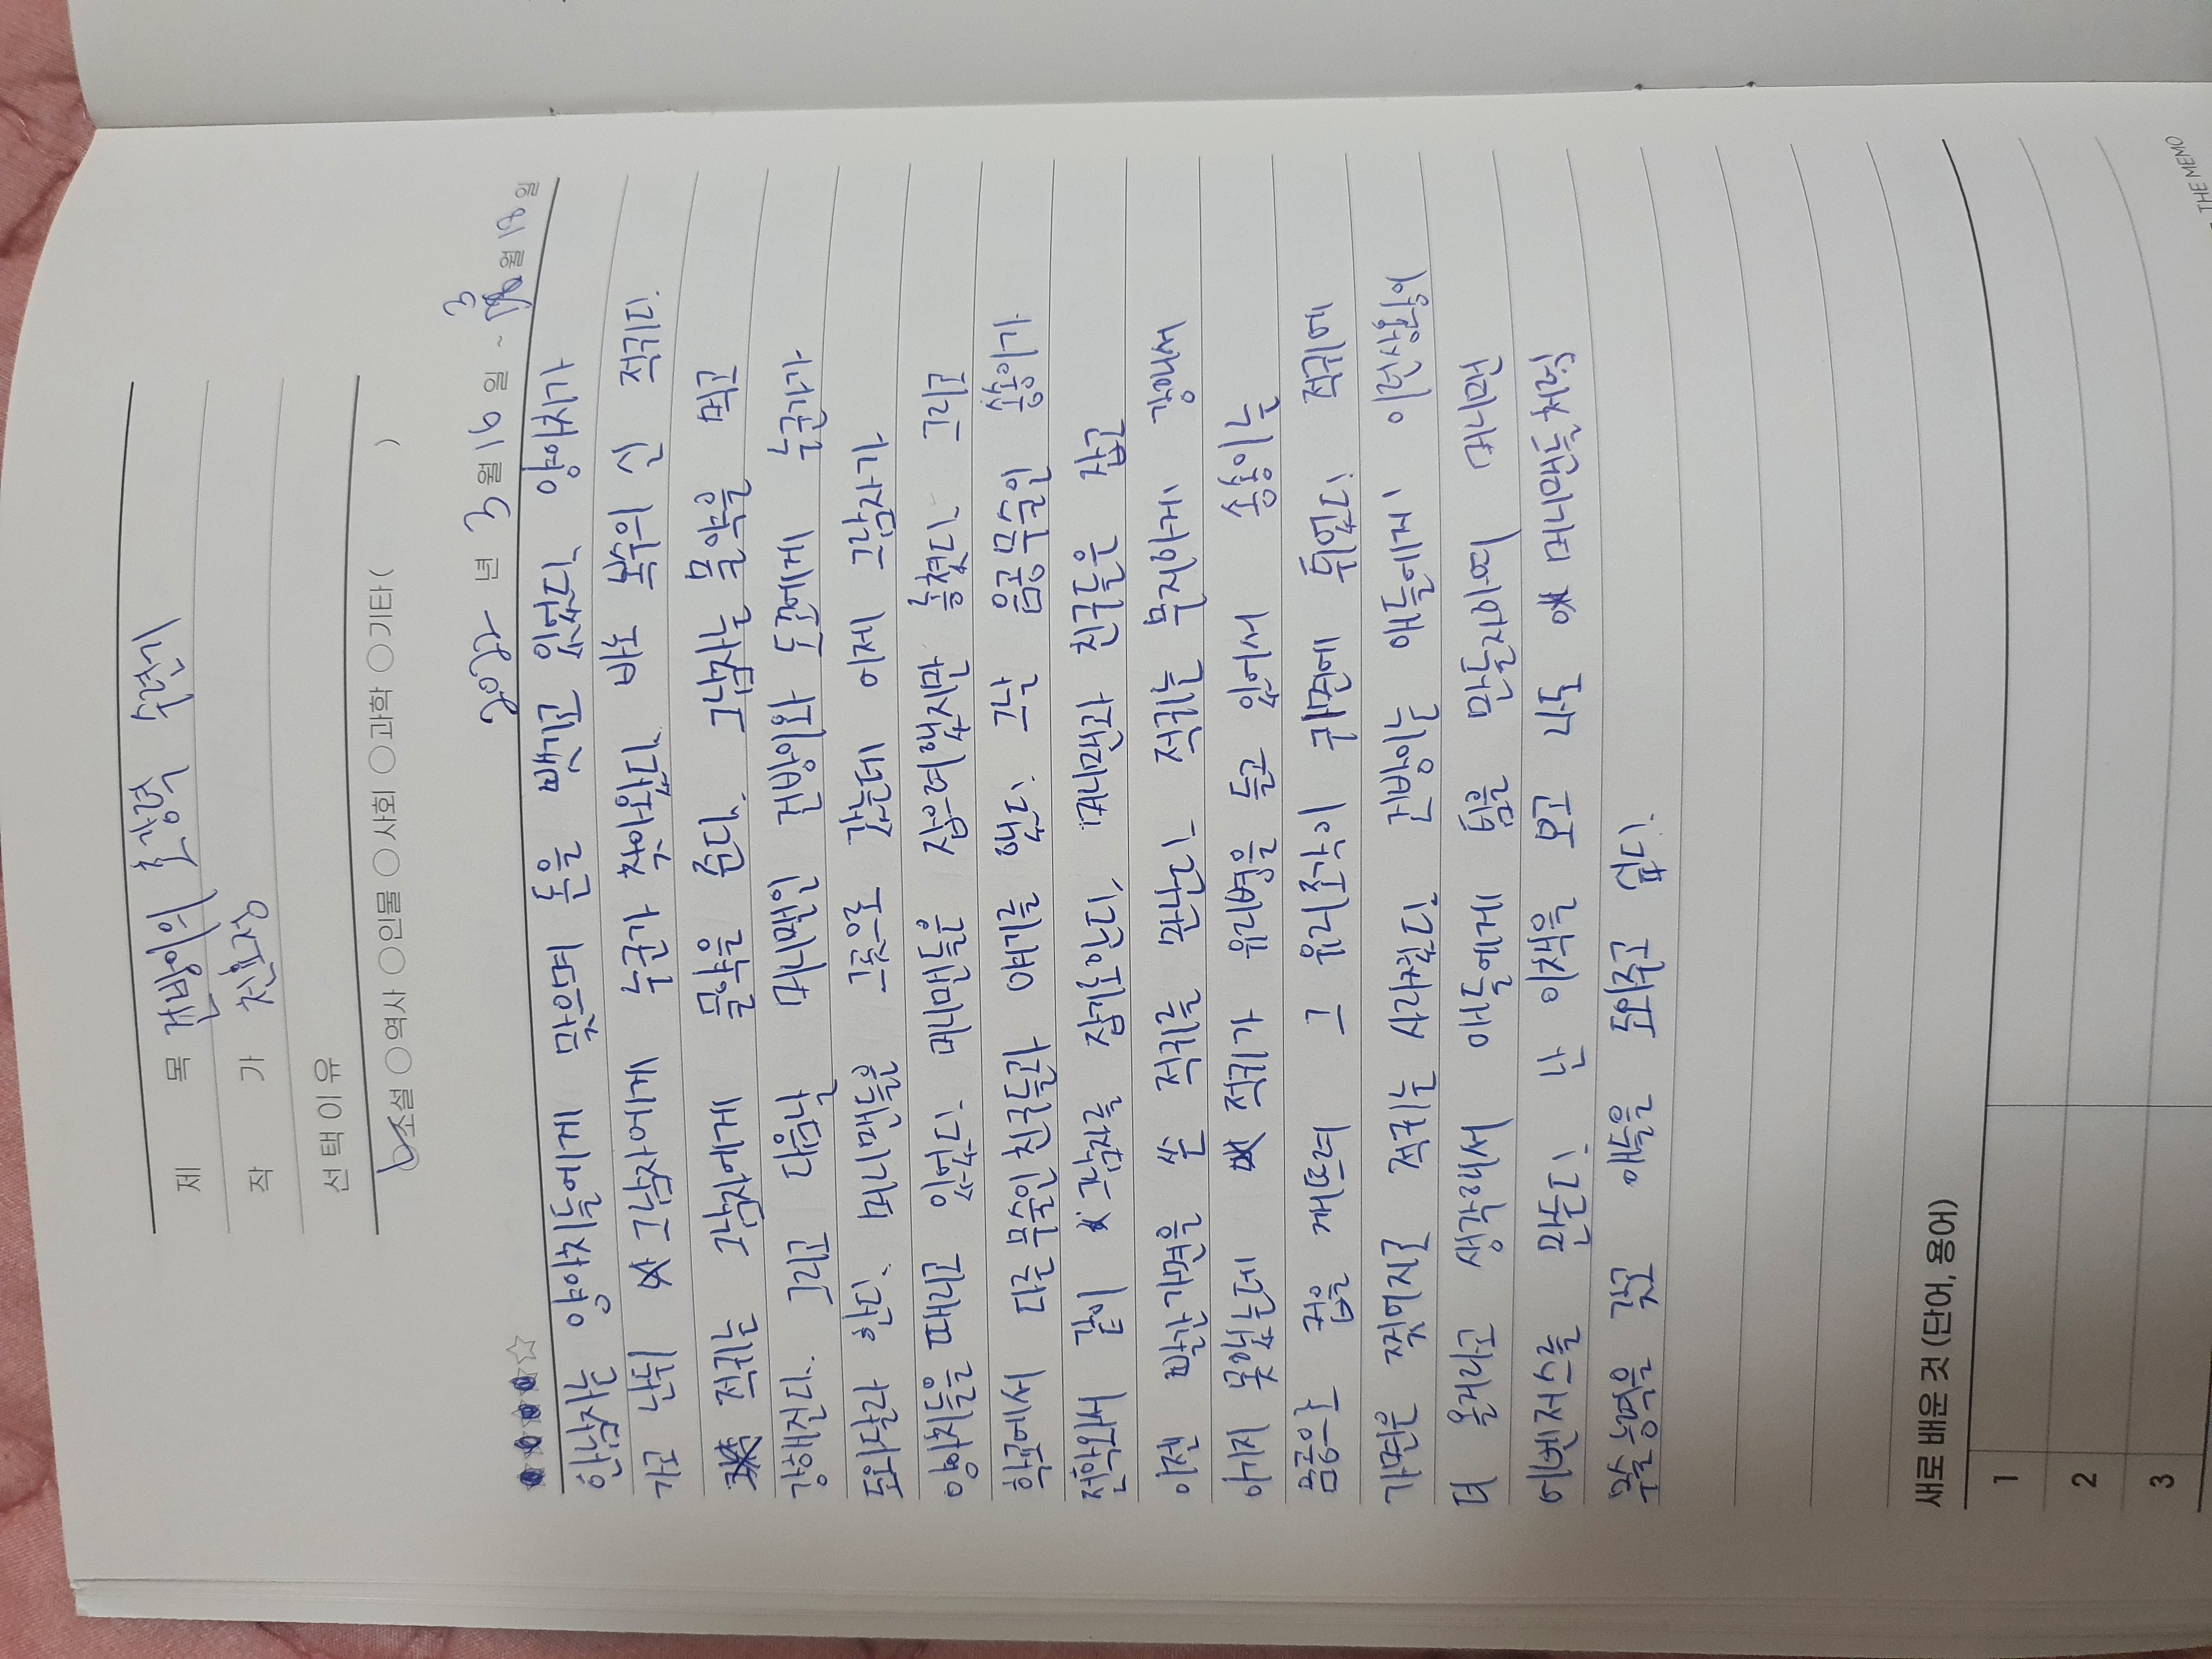 제 목 건방이의 초강력 수련기
작 가 천효정
선택이유
소설 역사 인물 사회 과학 기타 ( )
2022 년 3 월 16 일 ~ 3 월 18 일
한남자는 양아치들에게 맞으며 돈을 뺏기고 있었다. 양아치가
가고 난뒤 그남자에게 누군가 찾아왔다. 바로 복수의 신 적귀다.
적귀는 그남자에게 물약을 준다. 그남자는 물약을 먹고
강해진다. 그리고 다음날 머니맨인 건방이와 도꼬에게 누군가가
도와달라 한다. 머니맨들은 그곳으로 갔는데 어제 그남자가
양아치들을 때리고 있었다. 머니맨들은 잡으려했지만 놓쳤다. 그리고
학교에서 다른 무술인 친구들과 얘기를 했다. 그날 음공 무술인 송송이가
전학와서 같이 그남자를 잡기로한다. 머니맨과 친구들은 잡고
이젠 빨간가면을 쓴 적귀를 만난다. 적귀는 무지하게 강해서
이기지 못했는데 적귀가 유리병을 들고 있어서 송송이는
음공으로 컵을 깨뜨려 그 유리조각이 튀었다. 적귀에
가면은 찢어지고 적귀는 사라졌다. 건방이는 애들에게 이런상황이
더 올거라고 생각해서 애들에게 팀을 만들자하여 머니맨
어벤저스를 만든다. 난 이책을 보고 나도 머니맨들처럼
무술능력을 갖고 애들을 도와주고 싶다.
새로 배운 것 (단어, 용어)
1
2
3
THE MEMO